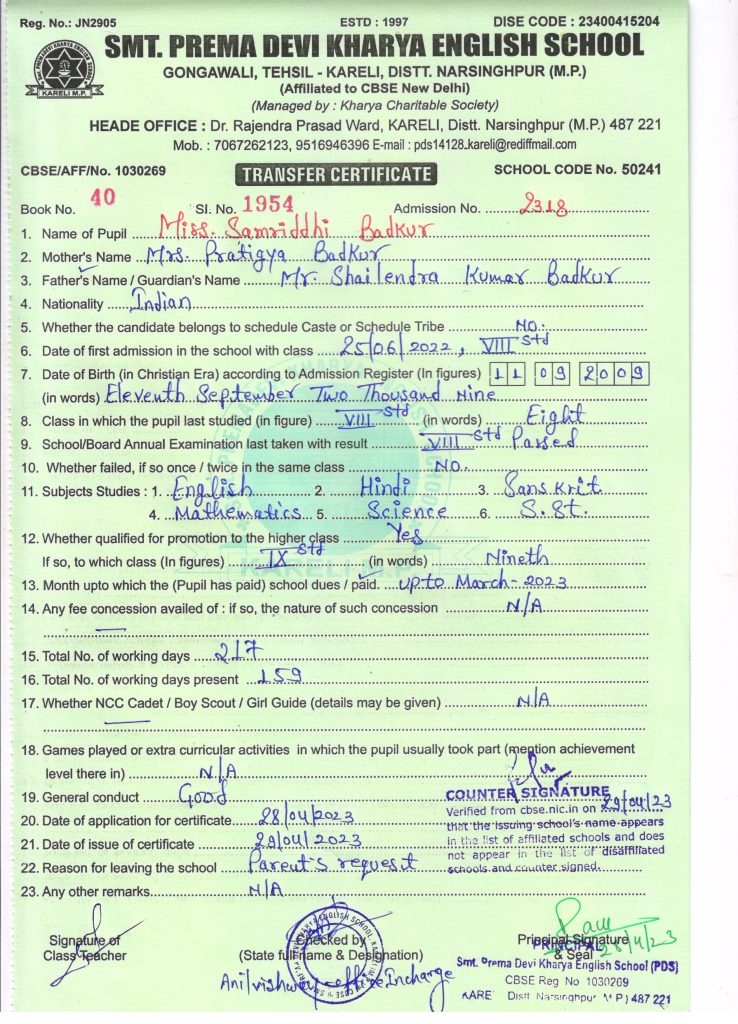 Reg. No.: JN2905 ESTD : 1997 DISE CODE : 23400415204
SMT. PREMA DEVI KHARYA ENGLISH SCHOOL
KARELI M.P.
GONGAWALI, TEHSIL - KARELI, DISTT. NARSINGHPUR (M.P.)
(Affiliated to CBSE New Delhi)
(Managed by : Kharya Charitable Society)
HEADE OFFICE : Dr. Rajendra Prasad Ward, KARELI, Distt. Narsinghpur (M.P.) 487 221
Mob. : 7067262123, 9516946396 E-mail : pds14128_kareli@rediffmail.com
CBSE/AFF/No. 1030269 TRANSFER CERTIFICATE SCHOOL CODE No. 50241
Book No. 40 Sl. No. 1954 Admission No. 2318
1. Name of Pupil Miss. Samriddhi Badkur
2. Mother's Name Mrs. Pratigya Badkur
3. Father's Name / Guardian's Name Mr. Shailendra Kumar Badkur
4. Nationality Indian
5. Whether the candidate belongs to schedule Caste or Schedule Tribe NO.
6. Date of first admission in the school with class 25/06/2022, VIII Std
7. Date of Birth (in Christian Era) according to Admission Register (In figures) 11 09 2009
(in words) Eleventh September Two Thousand Nine
8. Class in which the pupil last studied (in figure) VIII Std (in words) Eight
9. School/Board Annual Examination last taken with result VIII Std Passed
10. Whether failed, if so once / twice in the same class NO.
11. Subjects Studies : 1. English 2. Hindi 3. Sanskrit
4. Mathematics 5. Science 6. S.St.
12. Whether qualified for promotion to the higher class Yes
If so, to which class (In figures) IX Std (in words) Nineth
13. Month upto which the (Pupil has paid) school dues / paid. upto March-2023
14. Any fee concession availed of : if so, the nature of such concession N/A
15. Total No. of working days 217
16. Total No. of working days present 159
17. Whether NCC Cadet / Boy Scout / Girl Guide (details may be given) N/A
18. Games played or extra curricular activities in which the pupil usually took part (mention achievement
level there in) N/A
19. General conduct Good
COUNTER SIGNATURE
Verified from cbse.nic.in on 29/04/23
that the issuing school's name appears
in the list of affiliated schools and does
not appear in the list of disaffiliated
schools and counter signed.
20. Date of application for certificate 28/04/2023
21. Date of issue of certificate 29/04/2023
22. Reason for leaving the school Parent's request
23. Any other remarks N/A
Signature of Checked by Principal Signature
Class Teacher (State full Name & Designation) & Seal
PRINCIPAL
Smt. Prema Devi Kharya English School (PDS)
CBSE Reg No 1030269
KARE Distt Narsinghpur M P) 487 221
office Incharge